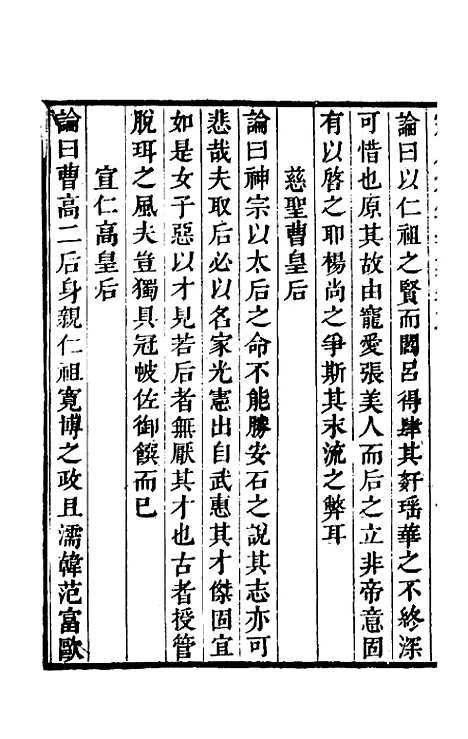 論曰以仁祖之賢而閻呂得肆其姧瑶華之不終深
可惜也原其故由寵愛張美人而后之立非帝意固
有以啓之耶楊尚之爭斯其末流之弊耳
慈聖曹皇后
論曰神宗以太后之命不能勝安石之說其志亦可
悲哉夫取后必以名家光憲出自武惠其才傑固宜
如是女子惡以才見若后者無厭其才也古者授管
脫珥之風夫豈獨具冠帔佐御饌而已
宣仁高皇后
論曰曹高二后身親仁祖寬博之政且濡韓范富歐